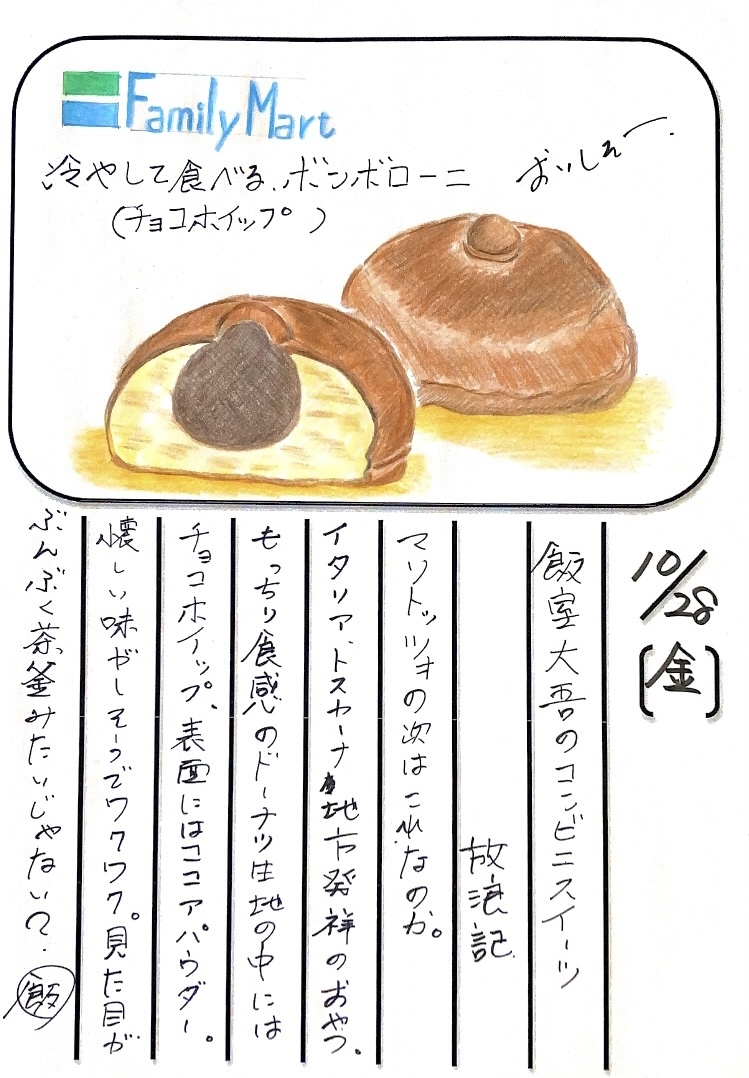 FamilyMart
冷やして食べる、ボンボローニ
(チョコホイップ)
おいしえー.
10/28
[金]
飯室大吾のコンビニスイーツ
放浪記
マリトッツォの次はこれなのか。
イタリア、トスカーナ地方発祥のおやつ。
もっちり食感のドーナツ生地の中には
チョコホイップ、表面にはココアパウダー。
懐しい味がしそうでワクワク。見た目が
ぶんぶく茶釜みたいじゃない?
飯